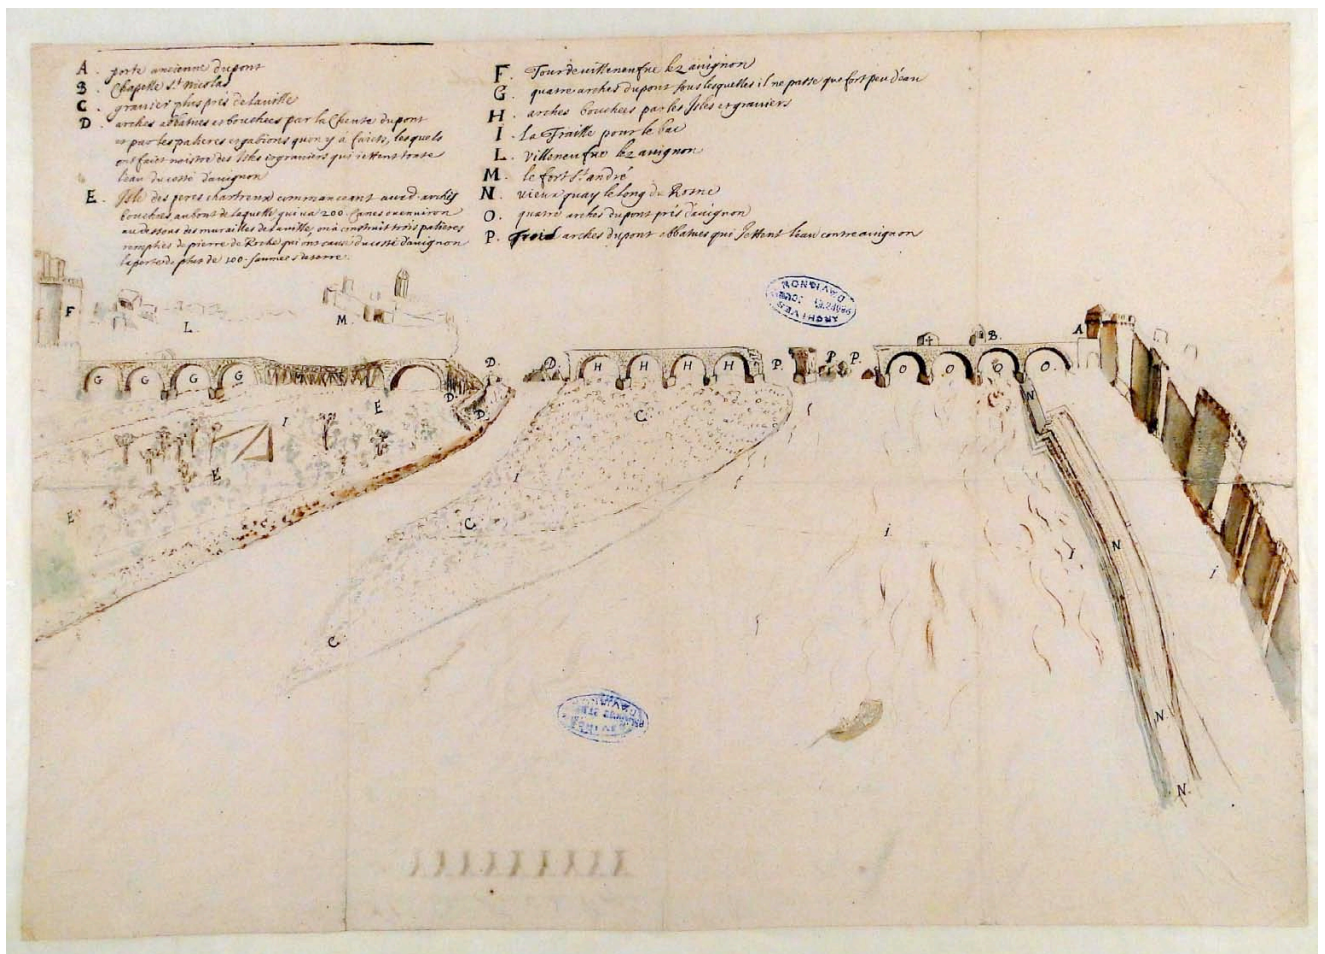 A. porte ancienne du pont
B. Chapelle St. Nicolas
C. gravier plus près de la ville
D. arches abbatues et bouchees par la Cheute du pont
et par les palieres et gabions quon y à faicts, lesquels
ont faict naistre des Isles et graviers qui jettent toute
leau du costé d'avignon
E. Isle des peres chartreux commanceant aux D. arches
bouchees au bout de laquelle qui va 200. Canes ou environ
au dessous des murailles de la ville, on à construit trois palieres
remplies de pierre de Roche qui ont causé du costé d'avignon
la perte de plus de 100. saumees de terre.
F. Tour de villeneufve lez avignon
G. quatre arches du pont sous lesquelles il ne passe que fort peu d'eau
H. arches bouchees par les Isles et graviers
I. La Traille pour le bac
L. villeneufve lez avignon
M. le fort St. andré
N. vieux quay le long du Rosne
O. quatre arches du pont près d'avignon
P. Trois arches du pont abbatues qui Jettent leau contre avignon
ARCHIVES
D'AVIGNON
F
L.
M.
G G G G
D. D. D. D.
H H H H
P. P. P.
B.
A
O O O O.
E
E
E
I
I
i
I
i
C
C
C
N
N
N
N.